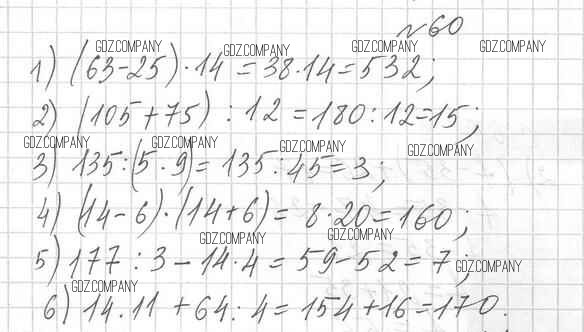 №60
GDZ.COMPANY GDZ.COMPANY GDZ.COMPANY GDZ.COMPANY
1) (63-25)·14=38·14=532;
2) (105+75):12=180:12=15;
GDZ.COMPANY GDZ.COMPANY GDZ.COMPANY GDZ.COMPANY
3) 135:(5·9)=135:45=3;
4) (14-6)·(14+6)=8·20=160;
GDZ.COMPANY GDZ.COMPANY
5) 177:3-14·4=59-52=7;
GDZ.COMPANY GDZ.COMPANY
6) 14.11+64:4=154+16=170.